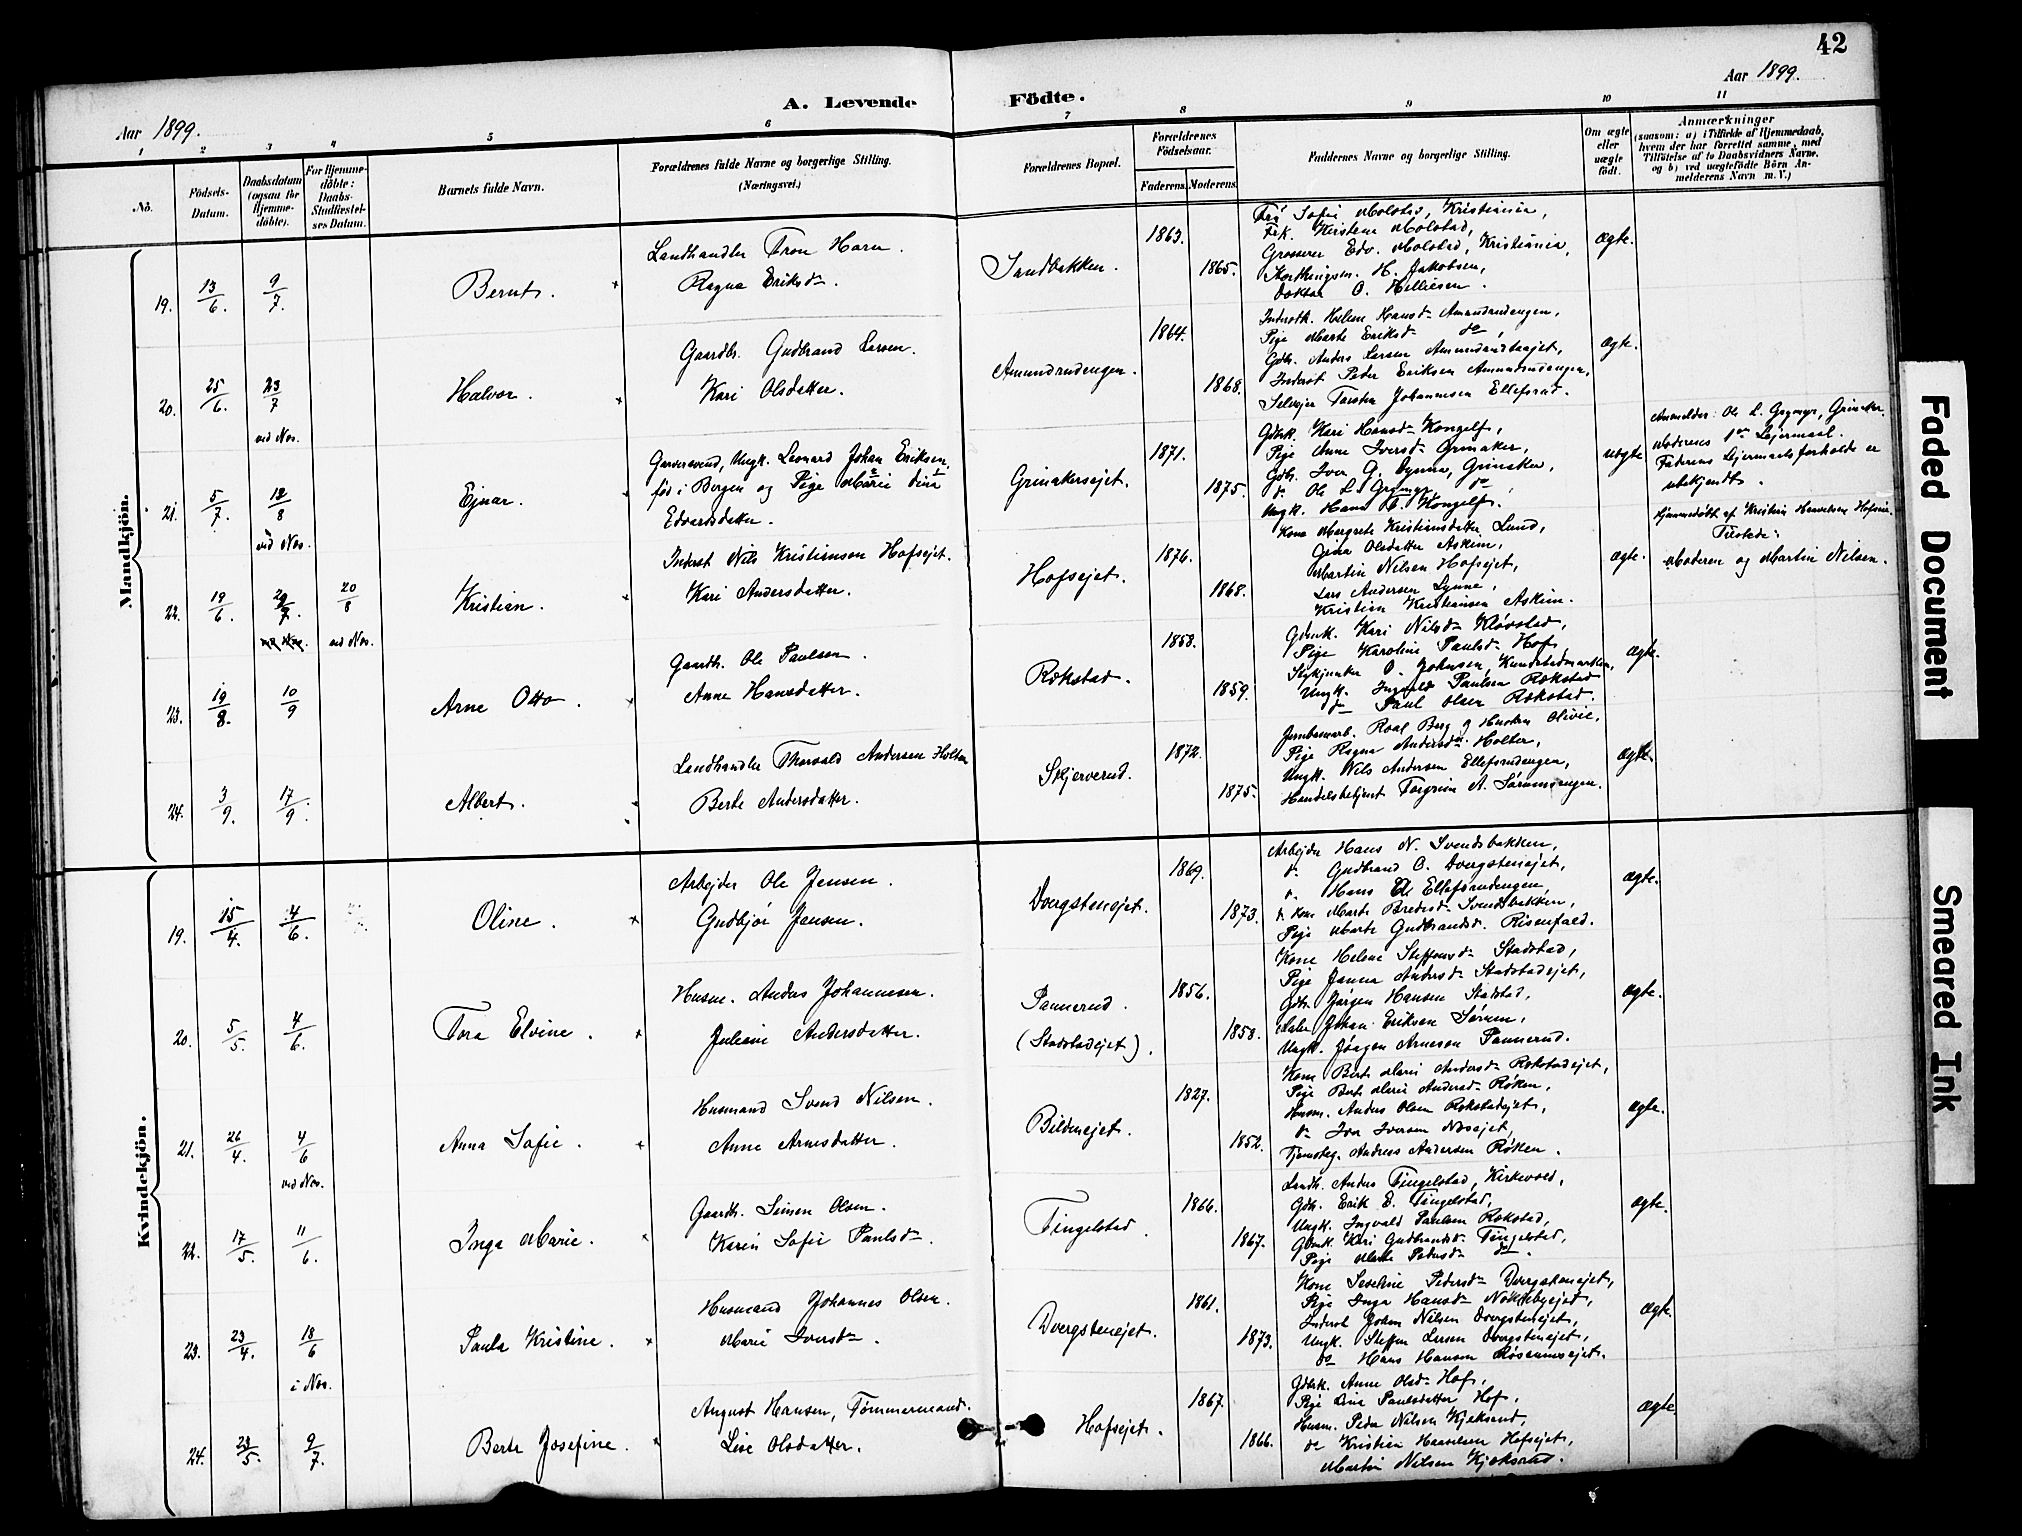 42
Aar 1899.
A. Levende
Födte.
Aar 1899.
1 2 3 4 5 6 7 8 9 10 11
No.
Födsels-
Datum.
Daabsdatum
(ogsaa for
Hjemme-
döbte).
For Hjemme-
döbte:
Daabs-
Stadfæstel-
ses Datum.
Barnets fulde Navn.
Forældrenes fulde Navne og borgerlige Stilling.
(Næringsvei.)
Forældrenes Bopæl.
Forældrenes
Födselsaar.
Faderens. Moderens.
Faddernes Navne og borgerlige Stilling.
Om ægte
eller
uægte
födt.
Anmærkninger
(saasom: a) i Tilfælde af Hjemmedaab,
hvem der har forrettet samme, med
Tilföielse af to Daabsvidners Navne.
og b) ved uægtefödte Börn An-
melderens Navn m. V.)
Mandkjön.
19. 13/6. 9/7. Bernt.
Landhandler Tron Horn.
Ragna Eriksd.
Sandbakken. 1863. 1865.
Fru Sofie Molstad, Kristiania,
Frk. Kirstene Molstad,
Grosserer Edv. Molstad, Kristiania,
Storthingsm. H. Jakobsen,
Doktor O. Hellesen.
Ægte.
20. 25/6. 23/7 Halvor.
ved Nos.
Gaardbr. Gudbrand Larsen.
Kari Olsdatter.
Amundrudengen. 1864. 1868.
Inderstk. Helene Hansd. Amundrudengen,
Pige Marte Eriksd. do,
Gdbr. Anders Larsen
Inderst Peder Eriksen Amundrudengen,
Selvejer Torsten Johannesen Ellefsrud.
Ægte.
21. 5/7. 12/8 Ejnar.
ved Nos.
Garversvend, Ungk. Leonard Johan Eriksen,
fød i Bergen og Pige Marie Lina
Edvardsdatter.
Grinakersejet. 1871. 1875.
Gdbrk. Kari Hansd. Kongelf,
Pige Anne Iversd. Grinaker,
Gdbr. Iver G. Lynne, Grinaker,
do Ole L. Grymyr, do
Ungk. Hans O. Kongelf.
Uægte
Anmelder: Ole L. Grymyr, Grinaker.
Moderens 1ste Lejermaal.
Faderens Lejermaalsforholde er
ubekjendt.
22. 19/6. 29/7. 20/8 Kristian.
ved Nos. ved Nos.
Inderst Nils Kristiansen Hofsejet.
Kari Andersdatter.
Hofsejet. 1876. 1868.
Kone Margrete Kristiansdatter Lund,
Gina Olsdatter Askim,
Martin Nilsen Hofsejet,
Lars Andersen Lynne,
Kristian Kristiansen Askim.
Ægte.
Hjemmedøbt af Kristian
Tilstede:
Moderen og Martin Nilsen.
23. 19/8. 10/9 Arne Otto.
Gaardbr. Ole Paulsen.
Anne Hansdatter.
Røkstad. 1853. 1859.
Gdbrk. Kari Nilsd. Kløvstad,
Pige Karoline Paulsd. Hof,
O. Johnsen,
Ungk. Ingvald Paulsen Røkstad
do Paul Olsen Røkstad.
Ægte.
24. 3/9. 17/9. Albert.
Landhandler Thorvald Andersen Holter
Berte Andersdatter.
Skjerverud. 1872. 1875.
Jernbanearb. Roal Berg og Hustru Olivie,
Pige Ragna Andersd. Holter,
Ungk. Nils Andersen Ellefsrudengen,
Handelsbetjent Torgrim A. Sørumsengen.
Ægte.
Kvindekjön.
19. 15/4. 4/6. Oline.
Arbejder Ole Jensen.
Gudbjør Jensen.
Dvergstenejet. 1869. 1873.
Arbejder Hans N. Svendsbakken,
do Gudbrand O. Dvergstenejet,
do Hans Ellefsrudengen,
Kone Marte Bredesd. Svendsbakken,
Pige Marte Gudbrandsd. Risenfald.
Ægte.
20. 5/5. 4/6. Tora Elvine.
Husm. Anders Johannesen.
Juliane Andersdatter.
Pannerud.
(Stadstadejet). 1856. 1858.
Kone Helene Steffensd. Stadstad,
Pige Janna Andersd. Stadstadejet,
Gdbr. Jørgen Hansen Stadstad,
Maler Johan Eriksen Sørum,
Ungk. Jørgen Arnesen Pannerud.
Ægte.
21. 26/4. 4/6 Anna Sofie.
ved Nos.
Husmand Svend Nilsen.
Anne Arnesdatter.
Bildenejet. 1827. 1852.
Kone Berte Marie Andersd. Røkstadejet,
Pige Berte Marie Andersd. Røken,
Husm. Anders Olsen Røkstadejet,
do Iver Iversen Næsejet,
Tjenesteg. Andreas Andersen Røken.
Ægte.
22. 17/5. 11/6. Inga Marie.
Gaardbr. Simen Olsen.
Karen Sofie Paulsd.
Tingelstad. 1866. 1867.
Landh. Anders Tingelstad, Kirkevold,
Gdbr. Erik E. Tingelstad,
Ungk. Ingvald Paulsen Røkstad,
Gdbrk. Kari Gudbrandsd. Tingelstad,
Pige Marte Pedersd. do.
Ægte.
23. 23/4. 18/6 Paula Kristine.
i Nos.
Husmand Johannes Olsen.
Marie Iversd.
Dvergstenejet. 1861. 1873.
Kone Severine Pedersd. Dvergstenejet,
Pige Inga Hansd. Nøkkebyejet,
Inderst Johan Nilsen Dvergstenejet,
Ungk. Steffen Larsen Dvergstenejet,
do Hans Hansen Røsumsejet.
Ægte.
24. 28/5. 9/7. Berte Josefine.
August Hansen, Tømmermand.
Lise Olsdatter.
Hofsejet. 1867. 1866.
Gdbrk. Anne Olsd. Hof,
Pige Lina Paulsdatter Hof,
Husm. Peder Nilsen Kjeksrud,
do Kristian Haavelsen Hofsejet,
Martin Nilsen Kjeksrud.
Ægte.
Faded Document
Smeared Ink